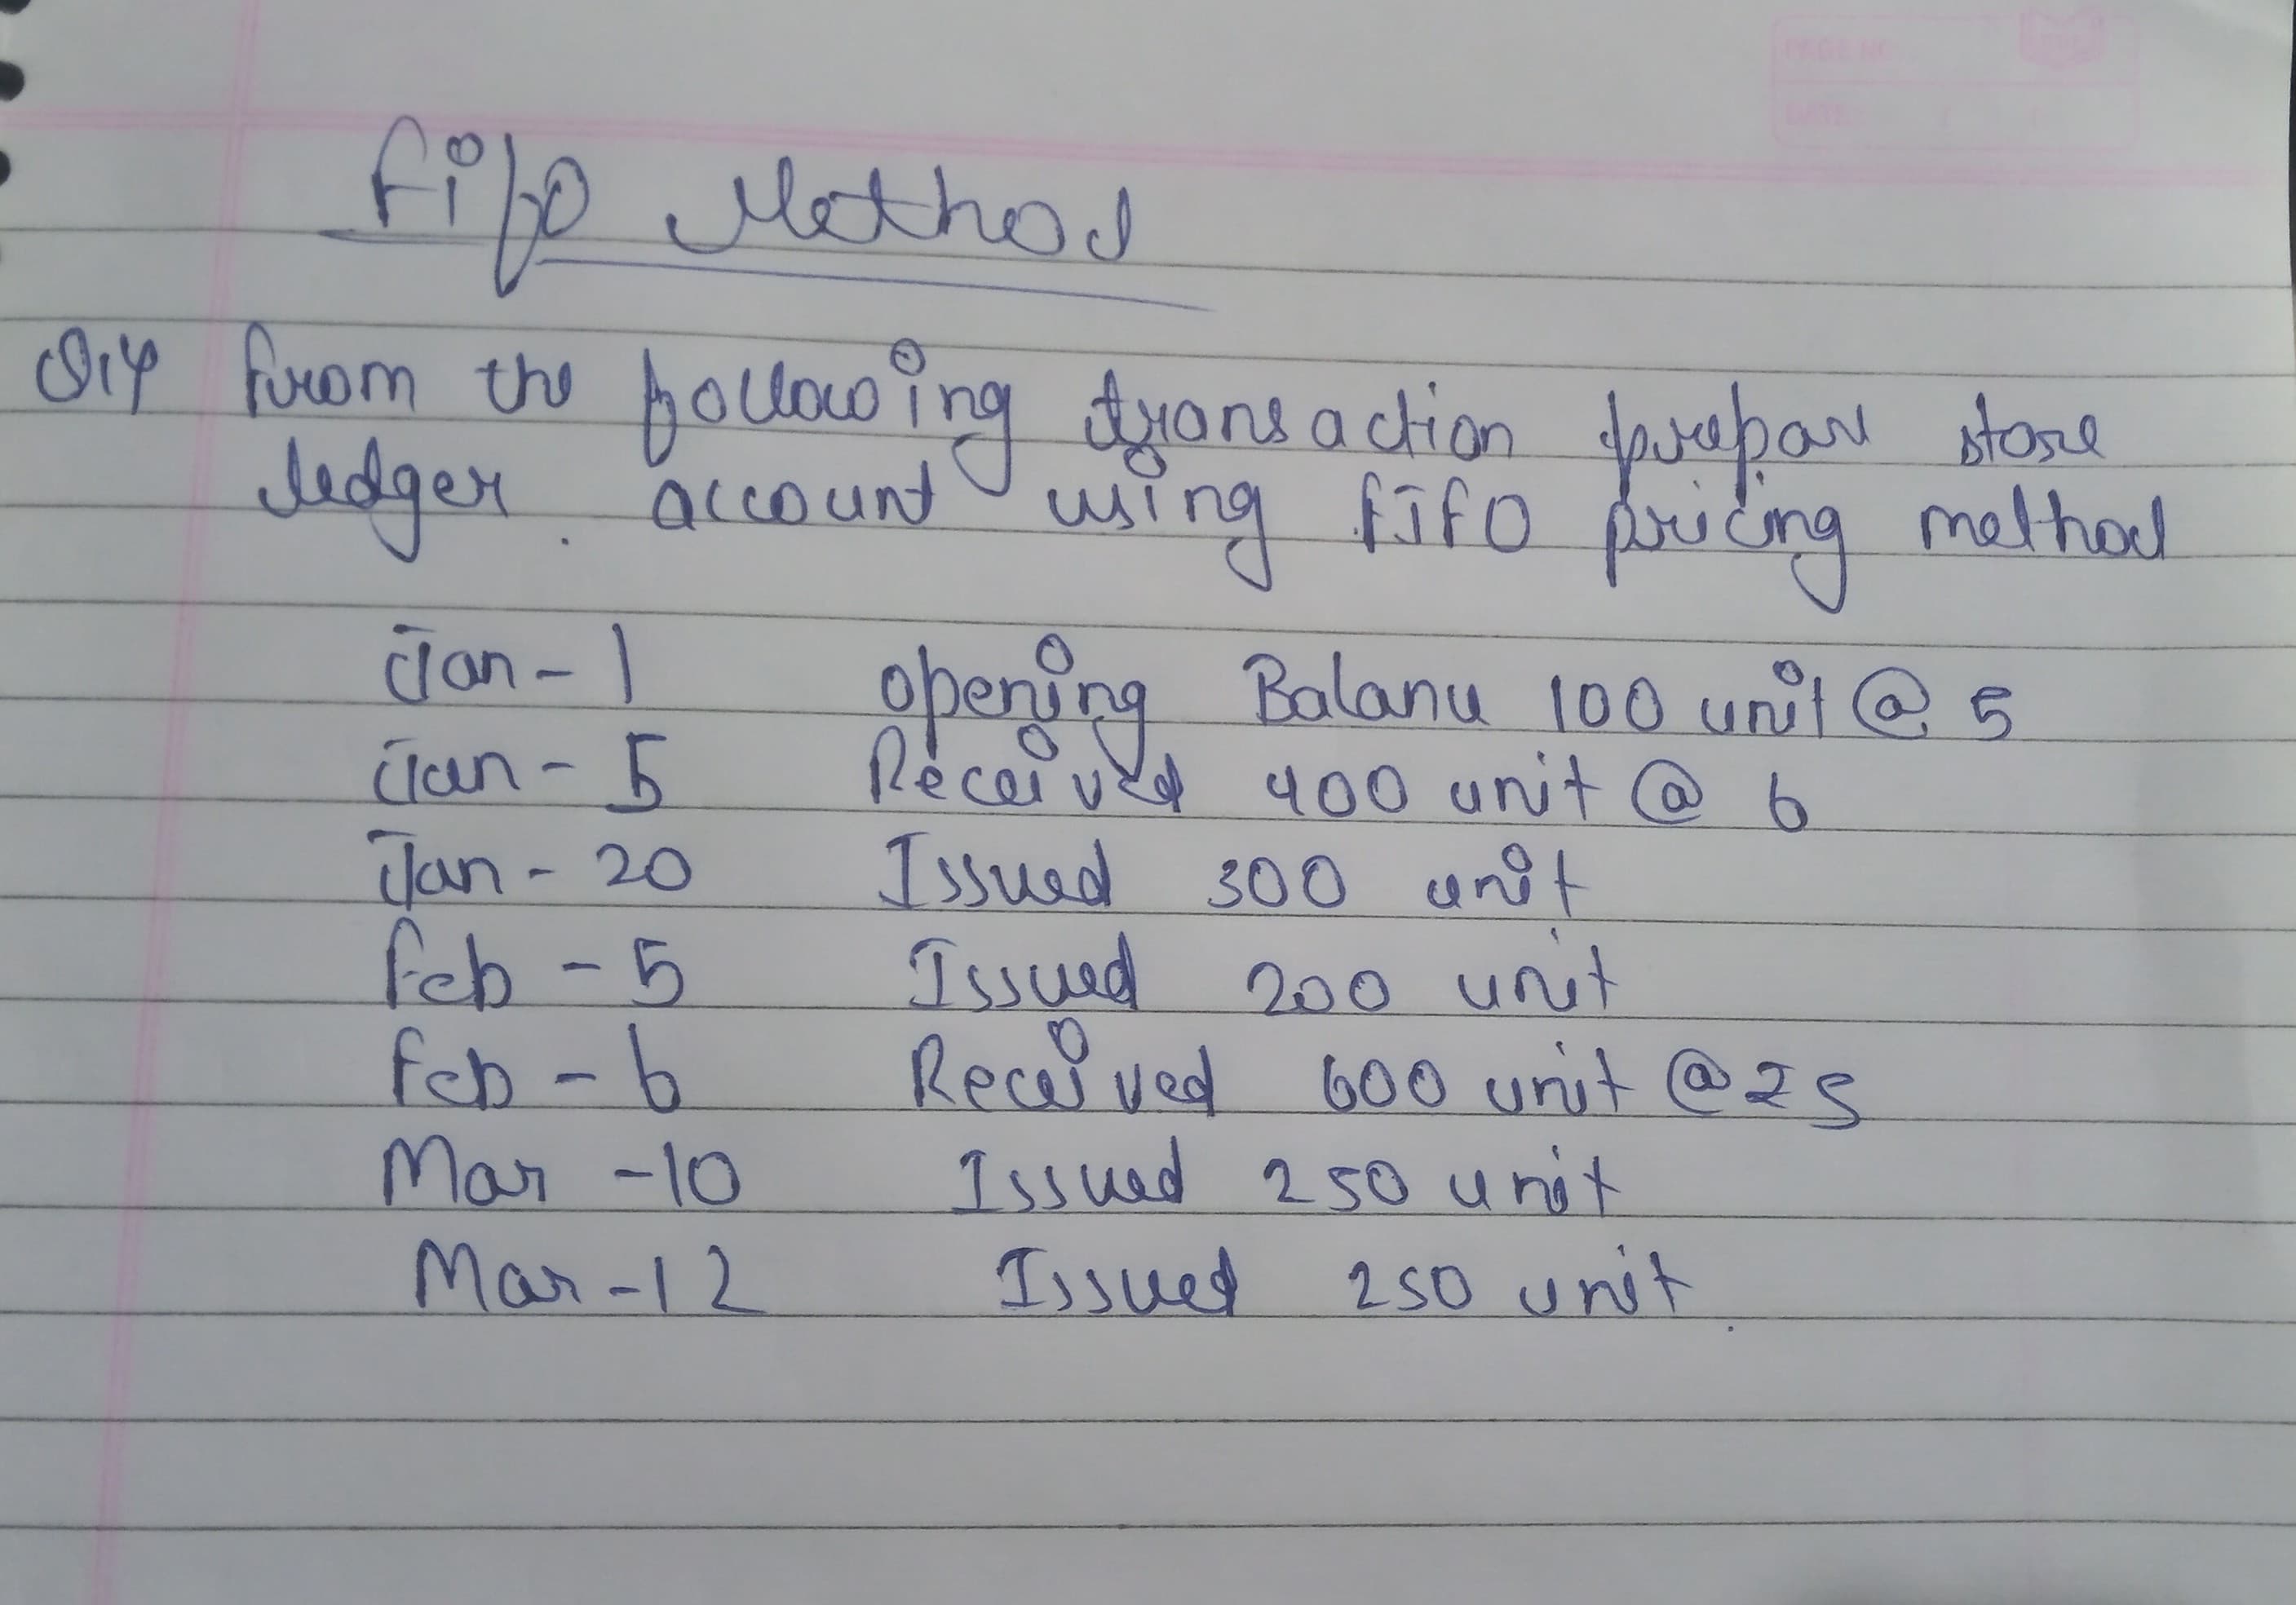 PAGE NO.
DATE:
Fifo Method
Q.4 From the following transaction prepare store
ledger account using FIFO pricing method
Jan - 1 opening Balance 100 unit @ 5
Jan - 5 Received 400 unit @ 6
Jan - 20 Issued 300 unit
Feb - 5 Issued 200 unit
Feb - 6 Received 600 unit @ 25
Mar - 10 Issued 250 unit
Mar - 12 Issued 250 unit